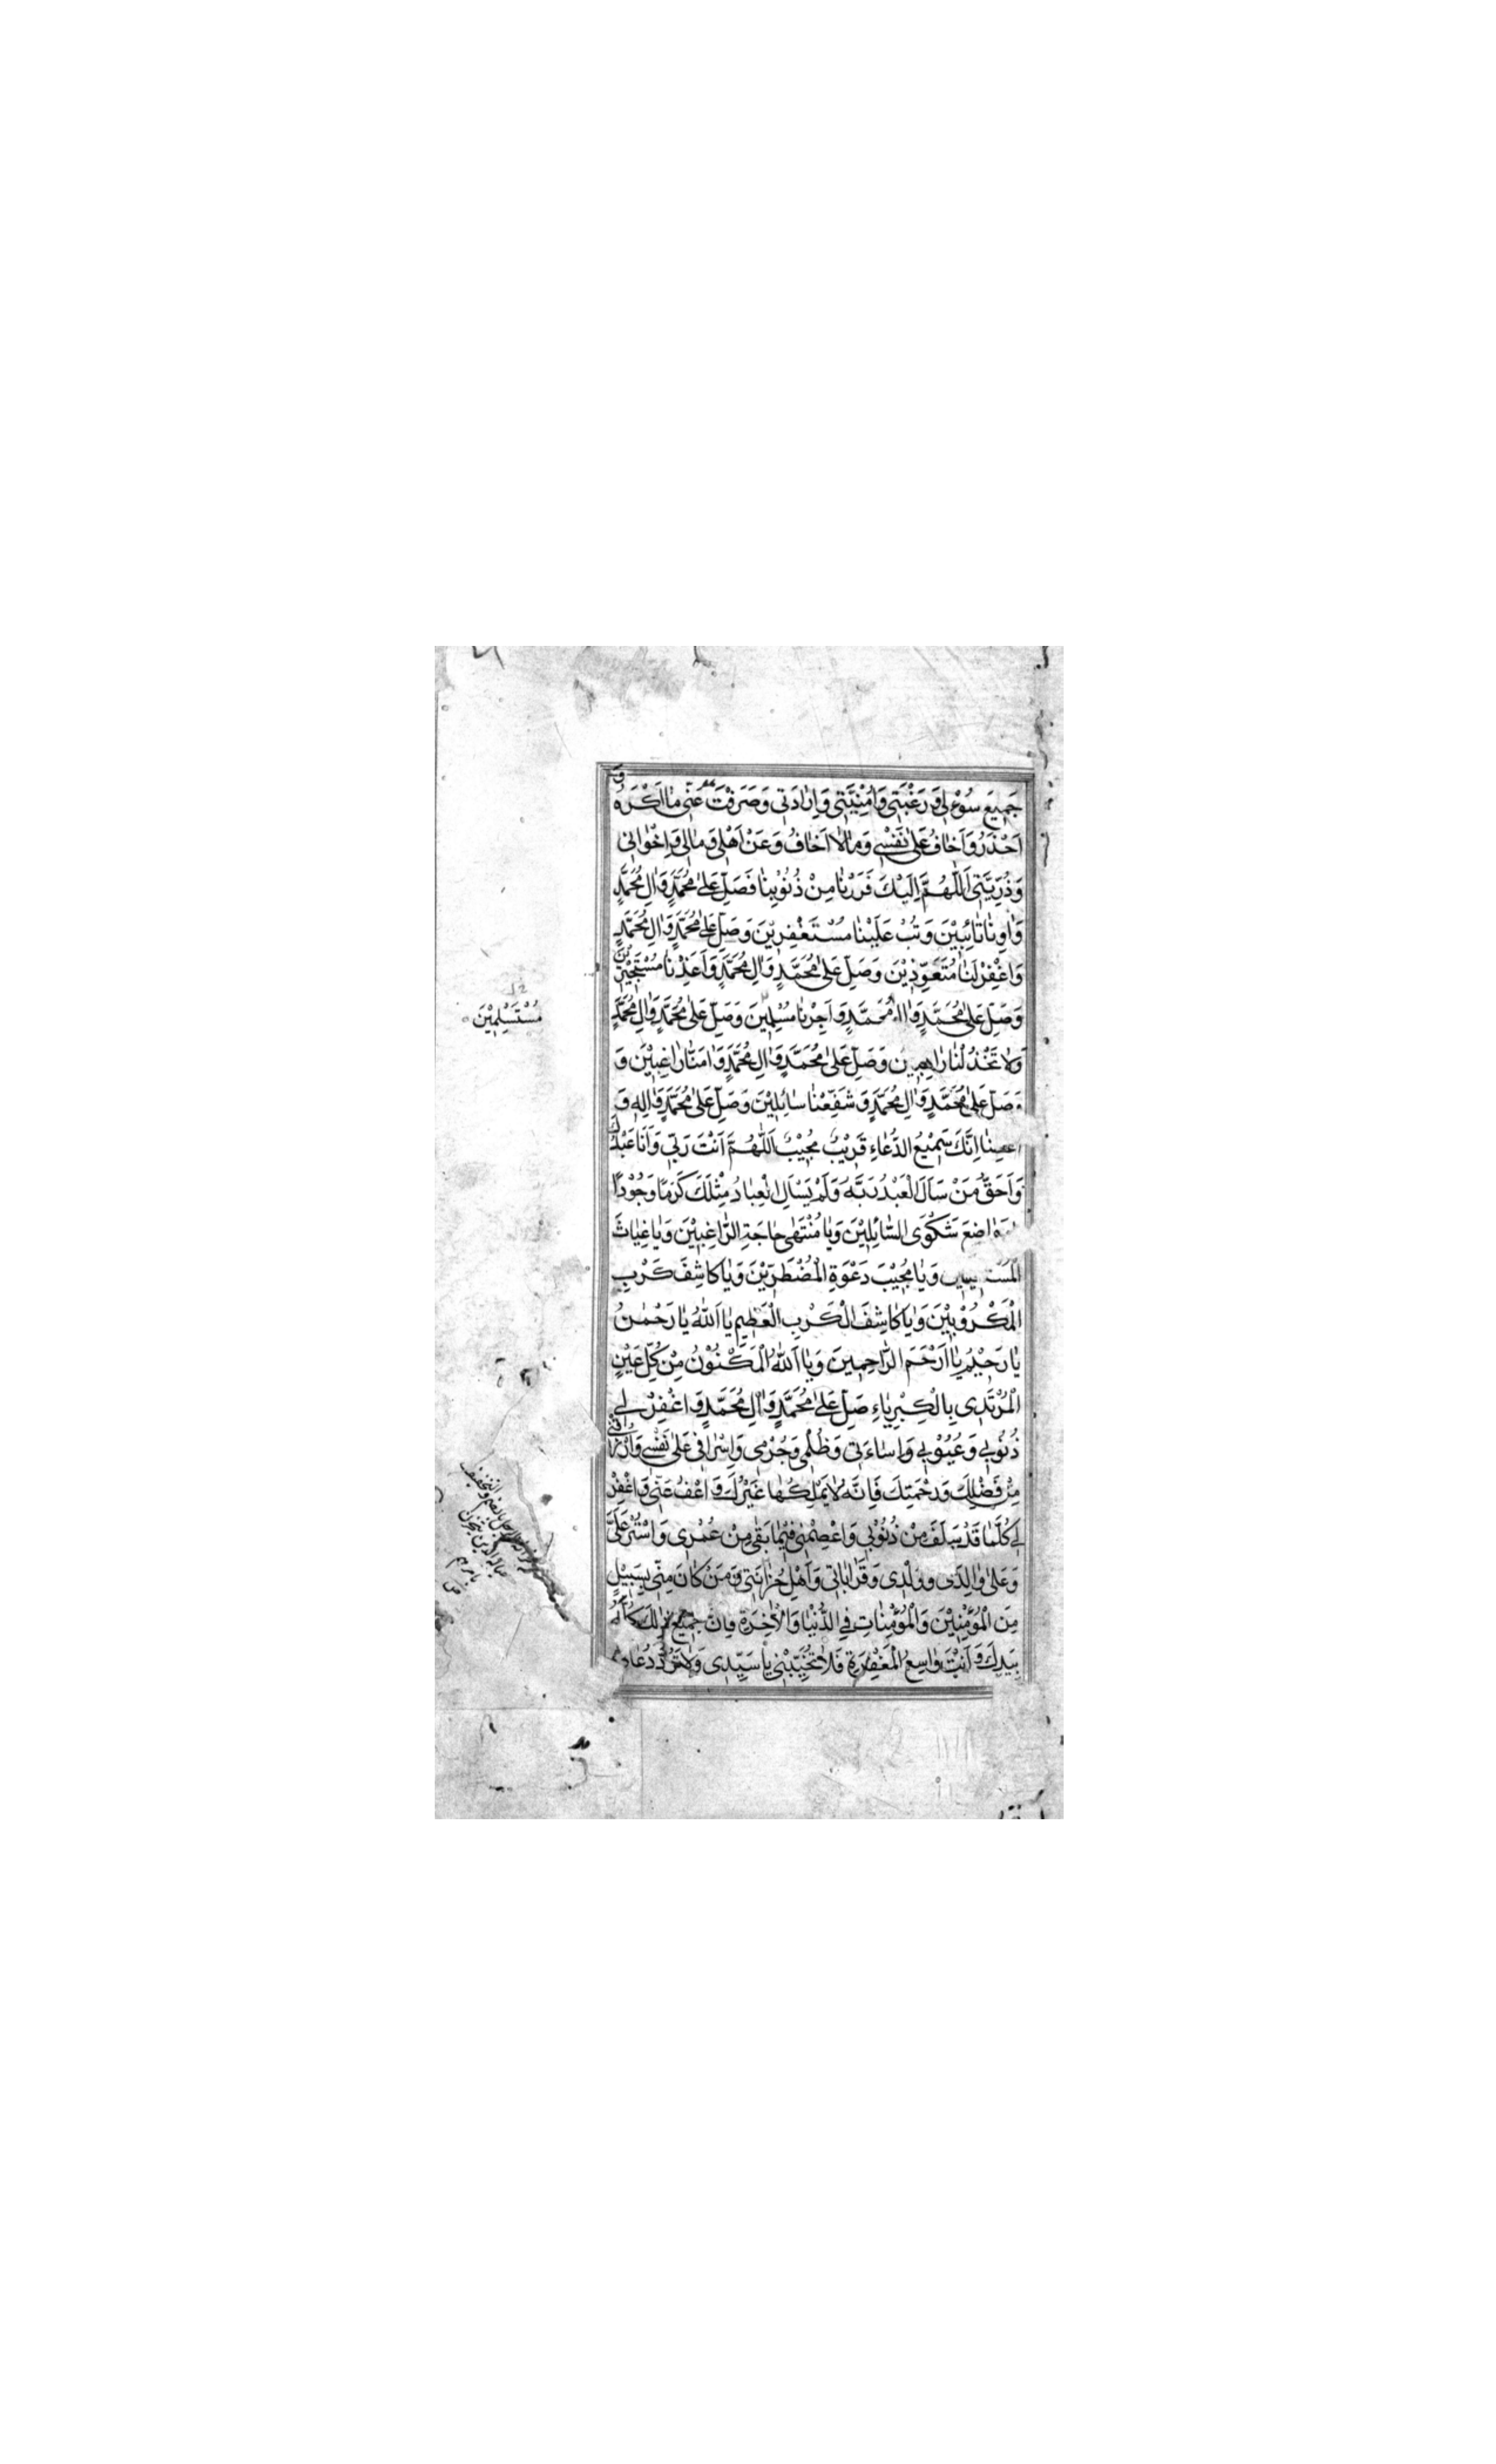 جَمِيعَ سُؤْلِي وَرَغْبَتِي وَاُمْنِيَّتِي وَاِرَادَتِي وَصَرَفْتَ عَنِّي مَا اَكْرَهُ وَ
اَحْذَرُ وَاَخَافُ عَلىٰ نَفْسِي وَمَالَا اَخَافُ وَعَنْ اَهْلِي وَمَالِي وَاِخْوَانِي
وَذُرِّيَّتِي اَللّٰهُمَّ اِلَيْكَ فَرَرْنَا مِنْ ذُنُوْبِنَا فَصَلِّ عَلىٰ مُحَمَّدٍ وَاٰلِ مُحَمَّدٍ
وَاٰوِنَا تَائِبِيْنَ وَتُبْ عَلَيْنَا مُسْتَغْفِرِيْنَ وَصَلِّ عَلىٰ مُحَمَّدٍ وَاٰلِ مُحَمَّدٍ
وَاغْفِرْ لَنَا مُتَعَوِّذِيْنَ وَصَلِّ عَلىٰ مُحَمَّدٍ وَاٰلِ مُحَمَّدٍ وَاَعِذْنَا مُسْتَجِيْرِيْنَ
وَصَلِّ عَلىٰ مُحَمَّدٍ وَاٰلِ مُحَمَّدٍ وَاَجِرْنَا مُسْلِمِيْنَ وَصَلِّ عَلىٰ مُحَمَّدٍ وَاٰلِ مُحَمَّدٍ
مُسْتَسْلِمِيْنَ
وَلَا تَخْذُلْنَا رَاهِبِيْنَ وَصَلِّ عَلىٰ مُحَمَّدٍ وَاٰلِ مُحَمَّدٍ وَاٰمِنَّا رَاغِبِيْنَ وَ
صَلِّ عَلىٰ مُحَمَّدٍ وَاٰلِ مُحَمَّدٍ وَشَفِّعْنَا سَائِلِيْنَ وَصَلِّ عَلىٰ مُحَمَّدٍ وَاٰلِهِ وَ
اِنَّكَ سَمِيْعُ الدُّعَاءِ قَرِيْبٌ مُجِيْبٌ اَللّٰهُمَّ اَنْتَ رَبِّي وَاَنَا عَبْدُكَ
وَاَحَقُّ مَنْ سَاَلَ الْعَبْدُ رَبَّهُ وَلَمْ يَسْاَلِ الْعِبَادُ مِثْلَكَ كَرَمًا وَجُوْدًا
شَكْوَى السَّائِلِيْنَ وَيَا مُنْتَهىٰ حَاجَةِ الرَّاغِبِيْنَ وَيَا غِيَاثَ
وَيَا مُجِيْبَ دَعْوَةِ الْمُضْطَرِّيْنَ وَيَا كَاشِفَ كَرْبِ
الْمَكْرُوْبِيْنَ وَيَا كَاشِفَ الْكَرْبِ الْعَظِيمِ يَا اَللّٰهُ يَا رَحْمٰنُ
يَا رَحِيْمُ يَا اَرْحَمَ الرَّاحِمِيْنَ وَيَا اَللّٰهُ الْمَكْنُوْنُ مِنْ كُلِّ عَيْنٍ
الْمُرْتَدِي بِالْكِبْرِيَاءِ صَلِّ عَلىٰ مُحَمَّدٍ وَاٰلِ مُحَمَّدٍ وَاغْفِرْ لِي
ذُنُوْبِي وَعُيُوْبِي وَاِسَاءَتِي وَظُلْمِي وَجُرْمِي وَاِسْرَافِي عَلىٰ نَفْسِي وَارْزُقْنِي
مِنْ فَضْلِكَ وَرَحْمَتِكَ فَاِنَّهُ لَا يَمْلِكُهَا غَيْرُكَ وَاعْفُ عَنِّي وَاغْفِرْ
لِي كُلَّمَا قَدْ سَلَفَ مِنْ ذُنُوْبِي وَاعْصِمْنِي فِيْمَا بَقِيَ مِنْ عُمْرِي وَاسْتُرْ عَلَيَّ
وَعَلىٰ وَالِدَيَّ وَوَلَدِي وَقَرَابَاتِي وَاَهْلِ حُزَانَتِي وَمَنْ كَانَ مِنِّي بِسَبِيْلٍ
مِنَ الْمُؤْمِنِيْنَ وَالْمُؤْمِنَاتِ فِي الدُّنْيَا وَالْاٰخِرَةِ فَاِنَّ جَمِيْعَ ذٰلِكَ كُلُّهُ
بِيَدِكَ وَاَنْتَ وَاسِعُ الْمَغْفِرَةِ فَلَا تُخَيِّبْنِي يَا سَيِّدِي وَلَا تَرُدَّ دُعَائِي